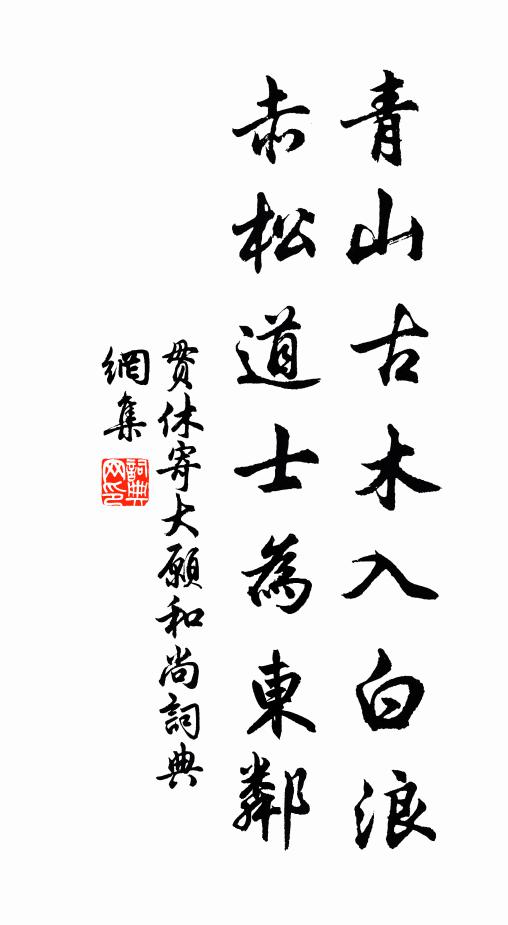 青山古木入白浪
赤松道士為東鄰
貫休寄大願和尚詞典
網集
詞典網印